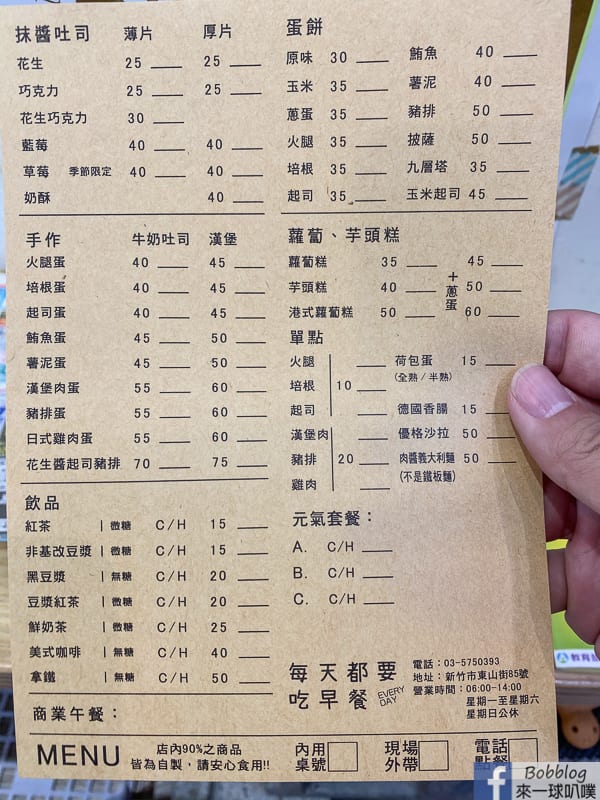 抹醬吐司 薄片 厚片
花生 25 25
巧克力 25 25
花生巧克力 30
藍莓 40 40
草莓 季節限定 40 40
奶酥 40
蛋餅
原味 30 鮪魚 40
玉米 35 薯泥 40
蔥蛋 35 豬排 50
火腿 35 披薩 50
培根 35 九層塔 35
起司 35 玉米起司 45
手作 牛奶吐司 漢堡
火腿蛋 40 45
培根蛋 40 45
起司蛋 40 45
鮪魚蛋 45 50
薯泥蛋 45 50
漢堡肉蛋 55 60
豬排蛋 55 60
日式雞肉蛋 55 60
花生醬起司豬排 70 75
蘿蔔、芋頭糕
蘿蔔糕 35 45
芋頭糕 40 50
港式蘿蔔糕 50 60
+蔥蛋
單點
火腿
培根 10
起司
漢堡肉
豬排 20
雞肉
荷包蛋 15
(全熟/半熟)
德國香腸 15
優格沙拉 50
肉醬義大利麵 50
(不是鐵板麵)
飲品
紅茶 | 微糖 C/H 15
非基改豆漿 | 微糖 C/H 15
黑豆漿 | 無糖 C/H 20
豆漿紅茶 | 微糖 C/H 20
鮮奶茶 | 微糖 C/H 25
美式咖啡 | 無糖 C/H 40
拿鐵 | 無糖 C/H 50
元氣套餐：
A. C/H
B. C/H
C. C/H
商業午餐：
每天都要
吃早餐 EVERY DAY
電話：03-5750393
地址：新竹市東山街85號
營業時間：06:00-14:00
星期一至星期六
星期日公休
MENU
店內90%之商品
皆為自製，請安心食用!!
內用
桌號
現場
外帶
電話
點餐
教育部
Bobblog
來一球叭噗